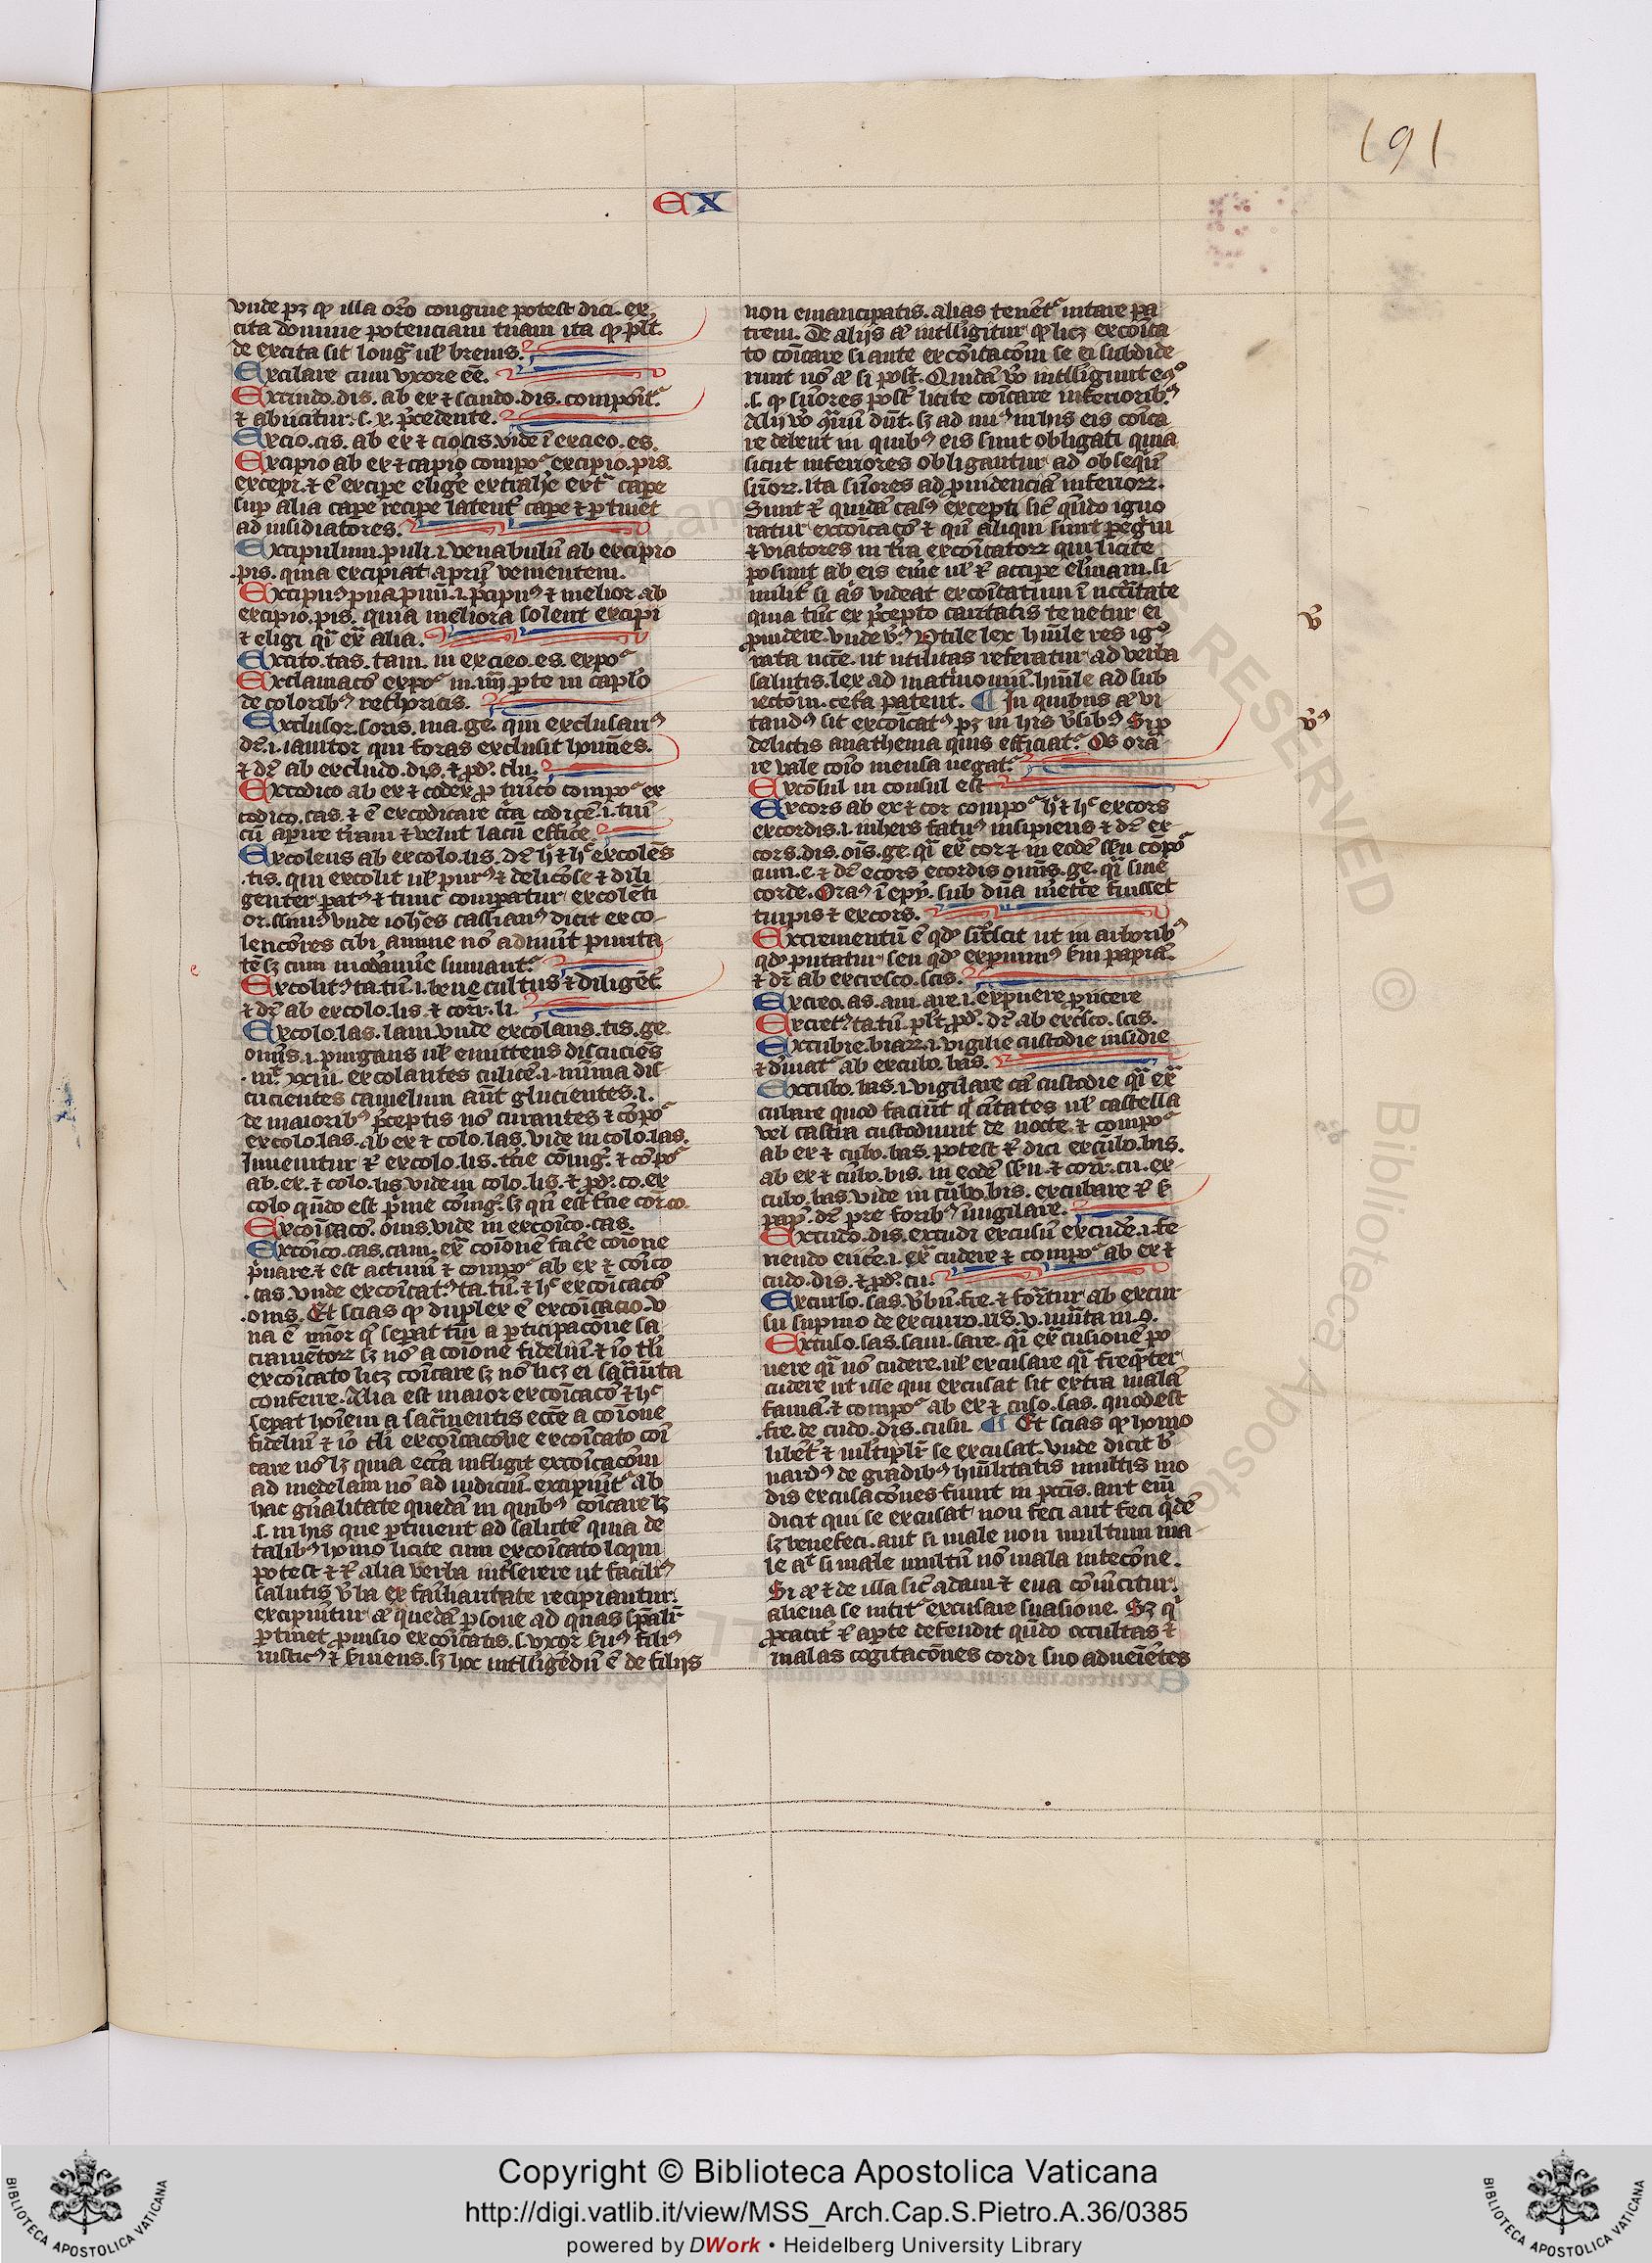 191
EX
vnde pꝫ ꝙ illa oro̅ congrue potest dici. ex
cita domine potenciam tuam ita ꝙ pl̅t.
de excita sit long̅ ul̛ breuis.
Exrilare cum vxore ee̅.
Excindo.dis. ab ex ⁊ scindo.dis. componit᷑
⁊ abiicitur .s. x. p̅cedente.
Excio.cis. ab ex ⁊ cio.cis. vide ī excieo.es.
Excipio ab ex ⁊ capio compo᷑ excipio.pis.
excepi. ⁊ ē excipe elige̅ extrahe̅ ext̅ cape
sup alia cape recipe latent̅ cape ⁊ ꝑtinet
ad insidiatores.
Excipulum.puli .i. venabulū ab excipio
.pis. quia excipiat aprū venientem.
Excipuꝰ.pua.puū .i. p̅cipuꝰ ⁊ melior ab
excipio.pis. quia meliora solent excipi
⁊ eligi q̅ ex̅ alia.
Excito.tas.taui. in excieo.es. expo᷑
Exclamaco̅ expo᷑ in .iiij. ꝑte in capl̅o
de coloribꝰ rethoricis.
Exclusor.soris. ma.ge. qm̅ exclusariꝰ
dr̅ .i. ianitor qui foras exclusit homines.
⁊ dr̅ ab excludo.dis. ⁊ ꝓd᷑. clu.
Excodico ab ex ⁊ codex ꝓ trūco compo᷑ ex
codico.cas. ⁊ ē excodicare ext̅ codicē .i. trū
cū aperire tr̅am ⁊ velut lacū effice̅
Excolens ab excolo.lis. dr̅ h̅ ⁊ hᷓ excole̅s
.tis. qui excolit ul̛ purꝰ ⁊ delicio̅se ⁊ dili
genter patꝰ ⁊ tunc comparatur excolenti
or.ssimꝰ vnde ioh̅es cassianꝰ dicit exco
lencio̅res cibi anime no̅ adimu̅t purita
te̅ sꝫ cum moda̅mine sumant᷑.
Excolitꝰ.ta.tū .i. bene cultus ⁊ diligēt̅
⁊ dr̅ ab excolo.lis. ⁊ corr̅. li.
Excolo.las.laui. vnde excolans.tis. ge.
om̅is .i. purgans ul̛ emittens discucie̅s
.mt̅. xxiii. excolantes culice̅ .i. minima dis
cucientes camelum aut̅ glucientes .i.
de maioribꝰ p̅ceptis no̅ curantes ⁊ co̅po᷑
excolo.las. ab ex ⁊ colo.las. vide in colo.las.
Inuenitur ⁊̅ excolo.lis. t̅cie co̅iug̅. ⁊ co̅po᷑
ab. ex. ⁊ colo.lis. vide in colo.lis. ⁊ ꝓd᷑. co. ex
colo qn̅do est p̅me co̅iug̅. sꝫ qn̅ est t̅cie cor̅. co.
Excoi̅caco̅.onis. vide in excoi̅co.cas.
Excoi̅co.cas.caui. ex̅ coi̅one̅ face̅ coi̅one
p̅uare. ⁊ est actiuū ⁊ compo᷑ ab ex ⁊ coi̅co
.cas. vnde excoi̅catꝰ.ta.tū. ⁊ hᷓ excoi̅caco̅
.onis. Et scias ꝙ duplex ē excoi̅cacio. v
na ē mi̅or q̅ sepat tm̅ a ꝑticipacione sa
cramēto⁊ sꝫ no̅ a coi̅one fideliū. ⁊ io̅ tl̅i
excoi̅cato licꝫ coi̅care sꝫ no̅ licꝫ ei sac̅mta
conferre. Alia est maior excoi̅caco̅ ⁊ hᷓ
sepat hoi̅em a sac̅mentis ecc̅e a coi̅one
fideliū ⁊ io̅ tl̅i excoi̅cacio̅ne excoi̅cato coi̅
care no̅ lꝫ quia ecc̅a infligit excoi̅caco̅m
ad medelam no̅ ad iudiciū. excipiu̅t᷑ ab
hac gn̅alitate queda̅ in quibꝰ coi̅care lꝫ
.s. in his que ꝑtinent ad salute̅ quia de
talibꝰ homo licite cum excoi̅cato loqui
potest ⁊ ⁊̅ alia verba int̅serere ut faciliꝰ
salutis v̅ba ex familiaritate recipiantur.
excipiu̅tur ⁊̅ queda̅ ꝑsone ad quas sp̅alr̅
ꝑtinet ꝓuisio excoi̅catis .s. vxor seruꝰ filiꝰ
rusticꝰ ⁊ seruiens. sꝫ hoc intelligēdū ē de filijs
non emancipatis. alias tenet᷑ iuuare pa
trem. De alijs ⁊̅ intelligitur ꝙ licꝫ excoi̅ca
to coi̅care si ante excoi̅caco̅m se ei subdide
runt no̅ ⁊̅ si post. Quida̅ vo̅ intelligunt eqᵒ
.s. ꝙ supiores pos̅t licite coi̅care inferioribꝰ
Alij vo̅ q̅rū du̅t. sꝫ ad minꝰ in his eis coi̅ca
re debent in quibꝰ eis sunt obligati quia
sicut inferiores obligantur ad obsequi̅
suꝑio⁊. ita suꝑiores ad ꝓuidencia̅ inferio⁊.
Sunt ⁊̅ quida̅ casꝰ excepti sic̅ qn̅do igno
ratur excoi̅caco̅ ⁊ qn̅ aliqui sunt peg̅ni
⁊ viatores in tr̅a excoi̅cato⁊ qui licite
possunt ab eis eme̅ ul̛ ⁊̅ accipe el̅inam. si
milit̅ si q̅s videat excoi̅catum ī nccitate
quia tūc ex p̅cepto caritatis tenetur ei
ꝓuidere. vnde v̅ꝰ Vtile lex humile res ig
rata ncce̅. ut utilitas referatur ad verba
salutis. lex ad matrimoniū. hum̅le ad sub
iectio̅m. cet̅a patent. ¶ In quibus ⁊̅ vi
tandꝰ sit excoi̅catꝰ pꝫ in his v̅sibꝰ Si ꝓ
delictis anathema quis efficiat᷑. Os ora
re vale coi̅o mensa negat᷑.
Exco̅sul in consul est
Excors ab ex ⁊ cor compo᷑ h̅ ⁊ hᷓ excors
excordis .i. iners fatuꝰ insipiens ⁊ dr̅ ex
cors.dis. oi̅s. ge. q̅ ex̅ cor ⁊ in eode̅ sn̅su co̅po᷑
cum. e. ⁊ dr̅ ecors ecordis omi̅s. ge. q̅ sine
corde. Oraꝰ ī epy̅. sub dn̅a m̅et̅ce fuisset
turpis ⁊ excors.
Excrementū ē qd̅ sup̅crescit ut in arboribꝰ
qd̅ putatur seu qd̅ expuimꝰ s̅m papia̅.
⁊ dr̅ ab excresco.scis.
Excreo.as.aui.are .i. expuere ꝓiicere
Excretꝰ.ta.tū. pl̅t. ꝓd᷑. dr̅ ab excresco.scis.
Excubie.bia⁊ .i. vigilie custodie insidie
⁊ d̅iuat᷑ ab excubo.bas.
Excubo.bas .i. vigilare ca̅ custodie q̅ ex̅
cubare quod faciu̅t q̅ ciuitates ul̛ castella
vel castra custodiunt de nocte. ⁊ compo᷑
ab ex ⁊ cubo.bas. potest ⁊̅ dici excubo.bis.
ab ex ⁊ cubo.bis. in eode̅ sn̅su ⁊ corr̅. cu. ex
cubo.bas. vide in cūbo.bis. excubare ⁊̅ s̅
pap᷑. dr̅ pre foribꝰ inuigilare.
Excudo.dis.excudi excusū excude̅ .i. fe
riendo eiice̅ .i. ex̅ cudere ⁊ compo᷑ ab ex ⁊
cudo.dis. ⁊ ꝓd᷑. cu.
Excurso.sas. v̅bū. fre. ⁊ formatur ab excur
su supino de excurro.ris. v. mutata in. o.
Excuso.sas.saui.sare. q̅ ex̅ cusione̅ po
nere q̅ no̅ cudere. ul̛ excusare q̅ freq̅ter
cudere ut ille qui excusat sit extra mala̅
fama̅. ⁊ compo᷑ ab ex ⁊ cuso.sas. quod est
.fre. de cudo.dis.cusu. ¶ Et scias ꝙ homo
libet̅ ⁊ multiplr̅ se excusat. vnde dicit b̅
nardꝰ de gradibꝰ humilitatis multis mo
dis excusaco̅nes fiunt in pcc̅is. aut eni̅
dicit qui se excusat non feci aut feci q̅de̅
sꝫ bene feci. aut si male non multum ma
le at̅ si male multū no̅ mala intecio̅ne.
Si ⁊̅ ⁊ de illa sic̅ adam ⁊ eua co̅uincitur.
aliena se nitit᷑ excusare suasione. Sꝫ q̅
ꝓcacit̅ ⁊̅ aꝑte defendit qn̅do occultas ⁊
malas cogitaco̅nes cordi suo adueie̅tes
v̅
v̅ꝰ
c
Copyright © Biblioteca Apostolica Vaticana
http://digi.vatlib.it/view/MSS_Arch.Cap.S.Pietro.A.36/0385
powered by DWork • Heidelberg University Library
BIBLIOTECA APOSTOLICA VATICANA
BIBLIOTECA APOSTOLICA VATICANA